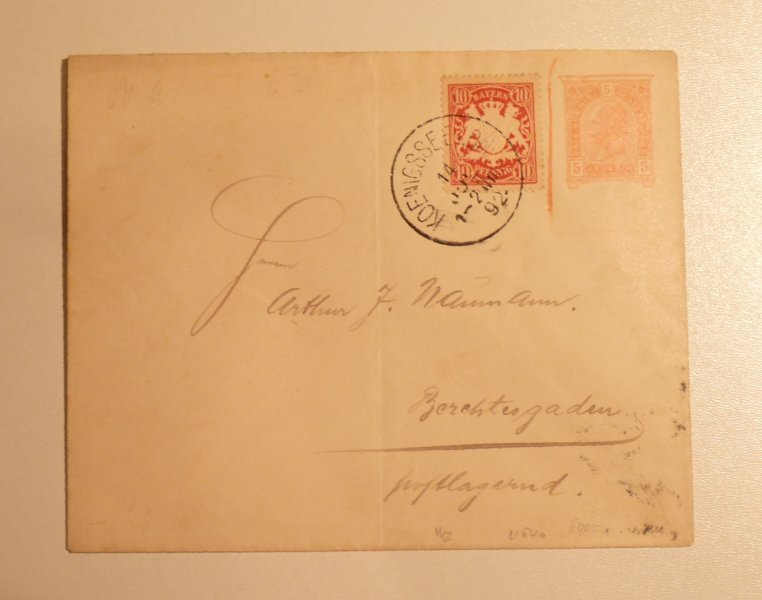 10 BAYERN 10
10 PFENNIG 10
5
5 5
KOENIGSSEE
14
92
Herrn
Arthur J. Naumann.
Berchtesgaden
postlagernd.